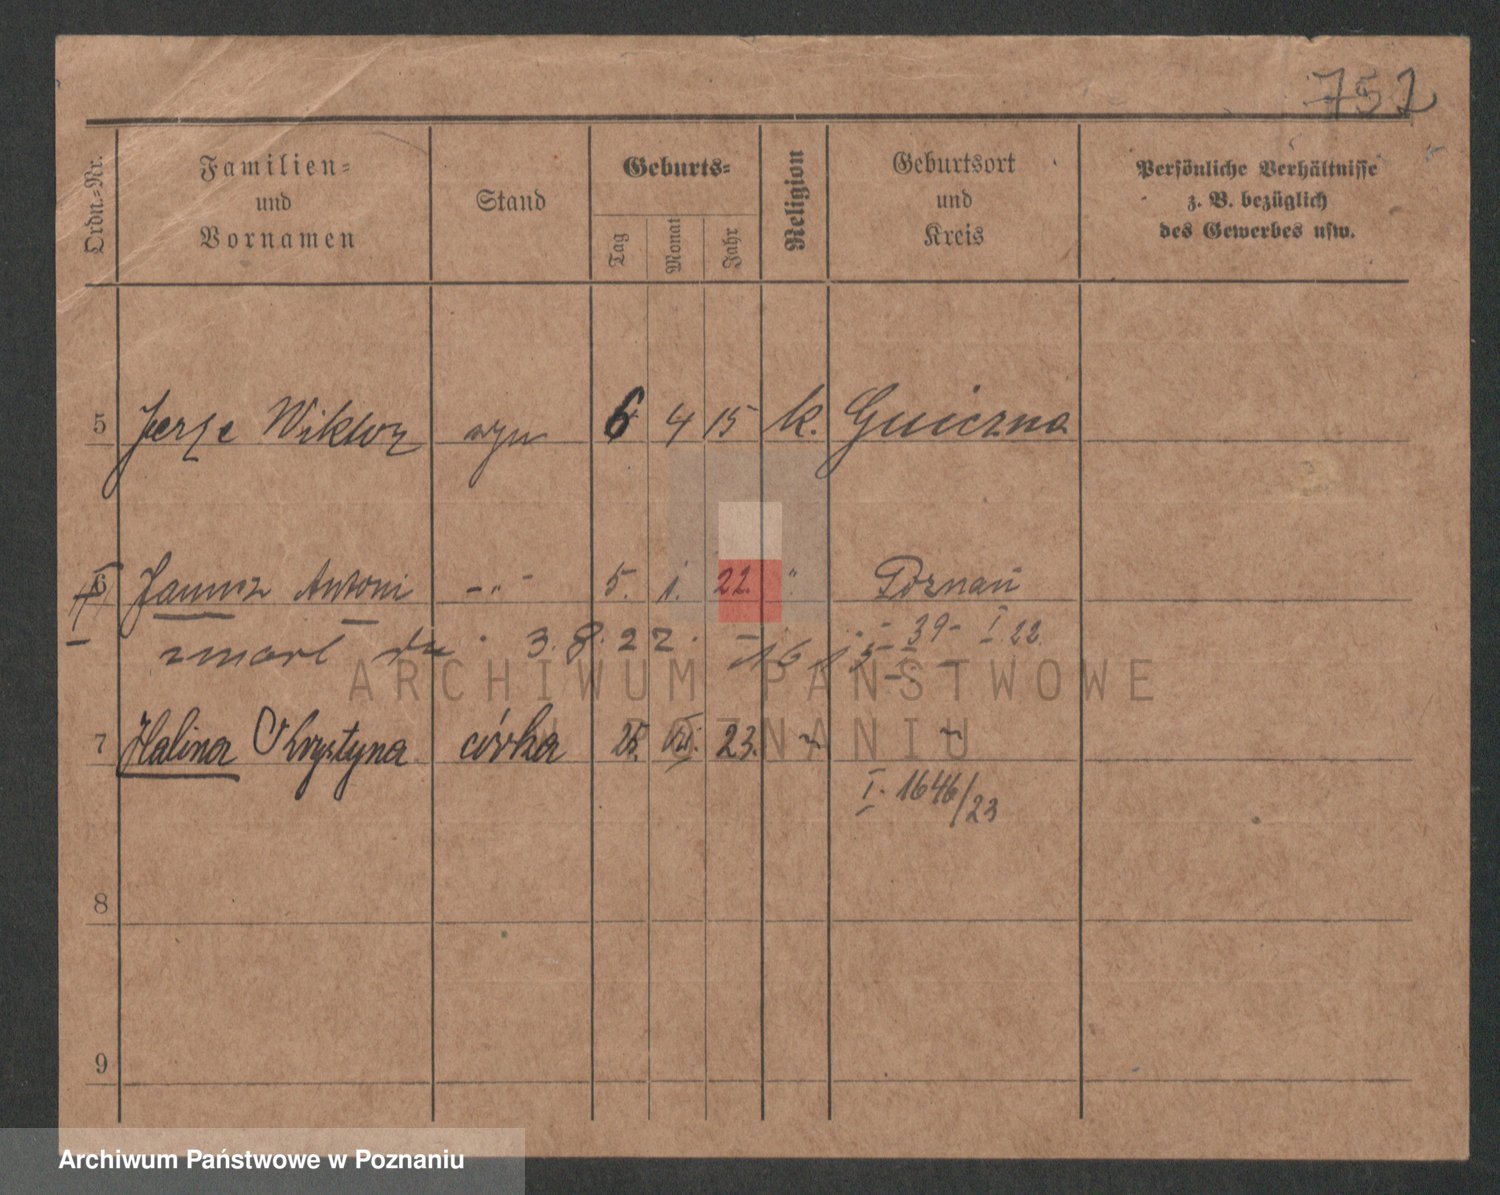 752
Ordn.-Nr.
Familien-
und
Vornamen
Stand
Geburts-
Tag
Monat
Jahr
Religion
Geburtsort
und
Kreis
Persönliche Verhältnisse
z. B. bezüglich
des Gewerbes usw.
5 Jerze Wiktor syn 6 4 15 k.
6 Janusz Antoni -"- 5. 1. 22. " Poznań
- 39- I 22
zmarł dn. 3.8.22.
ARCHIWUM PAŃSTWOWE
W POZNANIU
7 Halina Chrystyna córka 23.
I. 1646/23
8
9
Archiwum Państwowe w Poznaniu